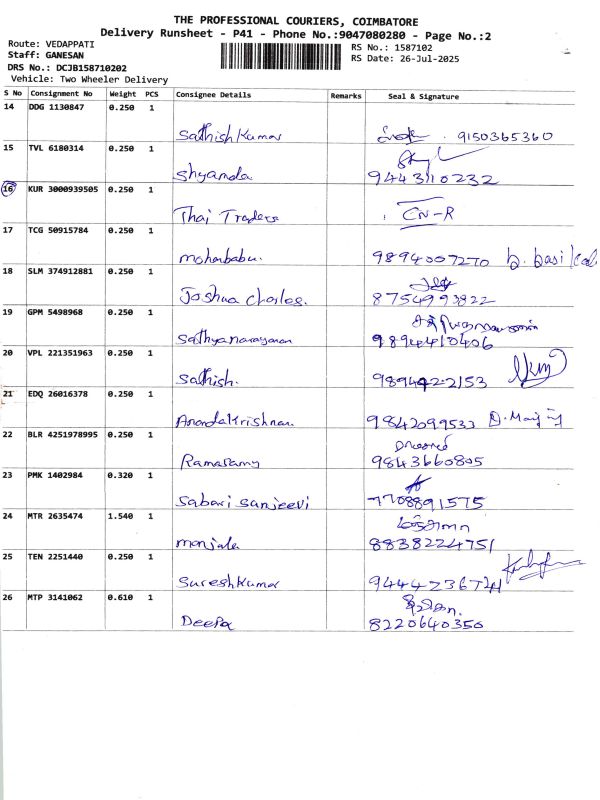 THE PROFESSIONAL COURIERS, COIMBATORE
Delivery Runsheet - P41 - Phone No.:9047080280 - Page No.:2
Route: VEDAPPATI
RS No.: 1587102
Staff: GANESAN
RS Date: 26-Jul-2025
DRS No.: DCJB158710202
Vehicle: Two Wheeler Delivery
S No Consignment No Weight PCS Consignee Details Remarks Seal & Signature
14 DDG 1130847 0.250 1
Sathish Kumar 9150365360
15 TVL 6180314 0.250 1
Shyamala 9443110232
16 KUR 3000939505 0.250 1
Thai Traders CN-R
17 TCG 50915784 0.250 1
mohanbabu. 9894007270
18 SLM 374912881 0.250 1
Joshua charles. 8754993822
19 GPM 5498968 0.250 1
Sathyanarayanan 9894410406
20 VPL 221351963 0.250 1
Sathish. 9894222153
21 EDQ 26016378 0.250 1
AnandaKrishnan 9842099533
22 BLR 4251978995 0.250 1
Ramasamy 9843660805
23 PMK 1402984 0.320 1
Sabari Sanjeevi 7708891575
24 MTR 2635474 1.540 1
manjula 8838224751
25 TEN 2251440 0.250 1
Suresh Kumar 9444236741
26 MTP 3141062 0.610 1
Deepa 8220640350